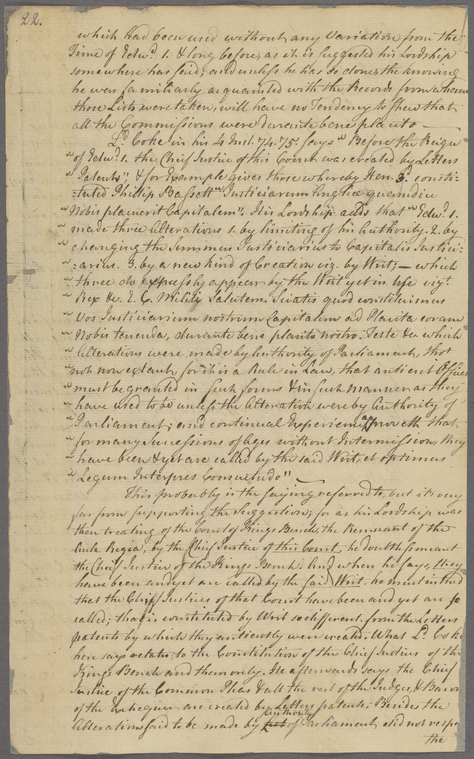 22.
which had been used without any Variation from the
Time of Edwd. 1. & long before, as it is suggested his Lordship
somewhere has said, and unless he has so done, the knowing
he was familiarly acquainted with the Records from whence
those Lists were taken, will have no Tendency to shew that
all the Commissions were durante bene placito —
Ld. Coke in his 4 Inst. 74.75. says "Before the Reign
" of Edwd. 1. the Chief Justice of this Court was created by Letters
" Patents", & for Example gives those whereby Hen. 3. consti-
"tuted Phillip Bassett "Justiciarium Angliæ quamdiu
" Nobis placuerit Capitalem". His Lordship adds that "Edwd. 1.
" made three Alterations 1. by limiting of his Authority. 2. by
" changing the Summus Justiciarius to Capitalis Justici-
" arius. 3. by a new kind of Creation viz. by Writ; — which
" three do expressly appear by the Writ yet in use vizt.
" Rex &c. E. C. Militi Salutem. Sciatis quod constituimus
" Vos Justiciarium nostrum Capitalem ad Placita coram
" Nobis tenenda, durante bene placito nostro. Teste &c which
" Alterations were made by Authority of Parliament, tho'
" not now extant, for it is a Rule in Law, that antient Offices
" must be granted in such forms & in such Manner as they
" have used to be unless the Alteration were by Authority of
" Parliament; and continual Experience approveth that,
" for many Successions of Ages without Intermission, they
" have been & yet are called by the said Writ, et optimus
" Legum Interpres Consuetudo" —
This probably is the saying referred to, but it is very
far from supporting the Suggestion; for as his Lordship was
then treating of the Court of Kings Bench, the Remnant of the
Aula Regia, by the Chief Justice of this Court, he doubtless meant
the Chief Justice of the Kings Bench. And when he says, they
have been and yet are called by the said Writ, he must intend
that the Chief Justices of that Court have been and yet are so
called; that is, constituted by Writ so different from the Letters
patents by which they antiently were created. What Ld. Coke
here says relates to the Constitution of the Chief Justices of the
Kings Bench and them only. He afterwards says the Chief
Justice of the Common Pleas & all the rest of the Judges, & Barons
of the Exchequer are created by Letters patents. Besides the
Alterations said to be made by Authority of Parliament did not respect
the